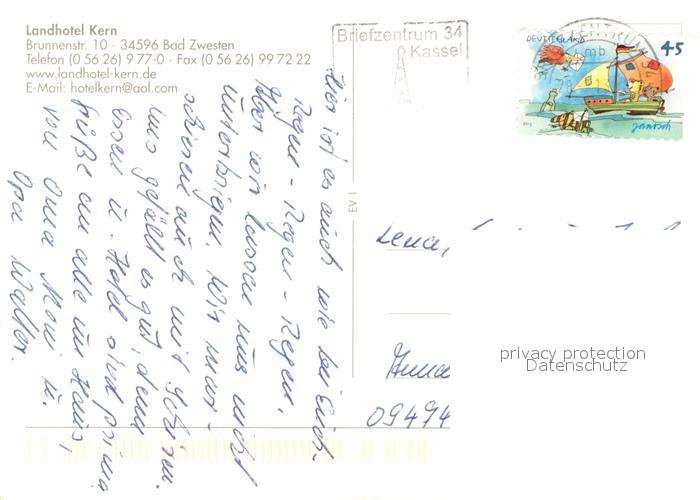 Landhotel Kern
Brunnenstr. 10 · 34596 Bad Zwesten
Telefon (0 56 26) 9 77-0 · Fax (0 56 26) 99 72 22
www.landhotel-kern.de
E-Mail: hotelkern@aol.com
Briefzentrum 34
Kassel
DEUTSCHLAND
45
janosch
EV 1
Hier ist es auch wie bei Euch.
Regen - Regen - Regen,
Aber wir lassen uns nicht
unterkriegen. Wir
auch mit
uns gefällt es gut, denn
Essen u. Hotel sind prima
Grüße an alle im Haus,
von Oma Moni u.
Opa Walter.
Lena,
Anna
09494
privacy protection
Datenschutz